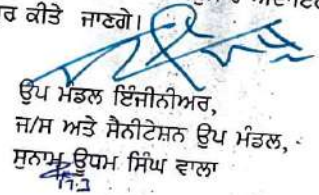 ਰ ਕੀਤੇ ਜਾਣਗੇ।
ਉਪ ਮੰਡਲ ਇੰਜੀਨੀਅਰ,
ਜ/ਸ ਅਤੇ ਸੈਨੀਟੇਸ਼ਨ ਉਪ ਮੰਡਲ,
ਸੁਨਾਮ ਊਧਮ ਸਿੰਘ ਵਾਲਾ